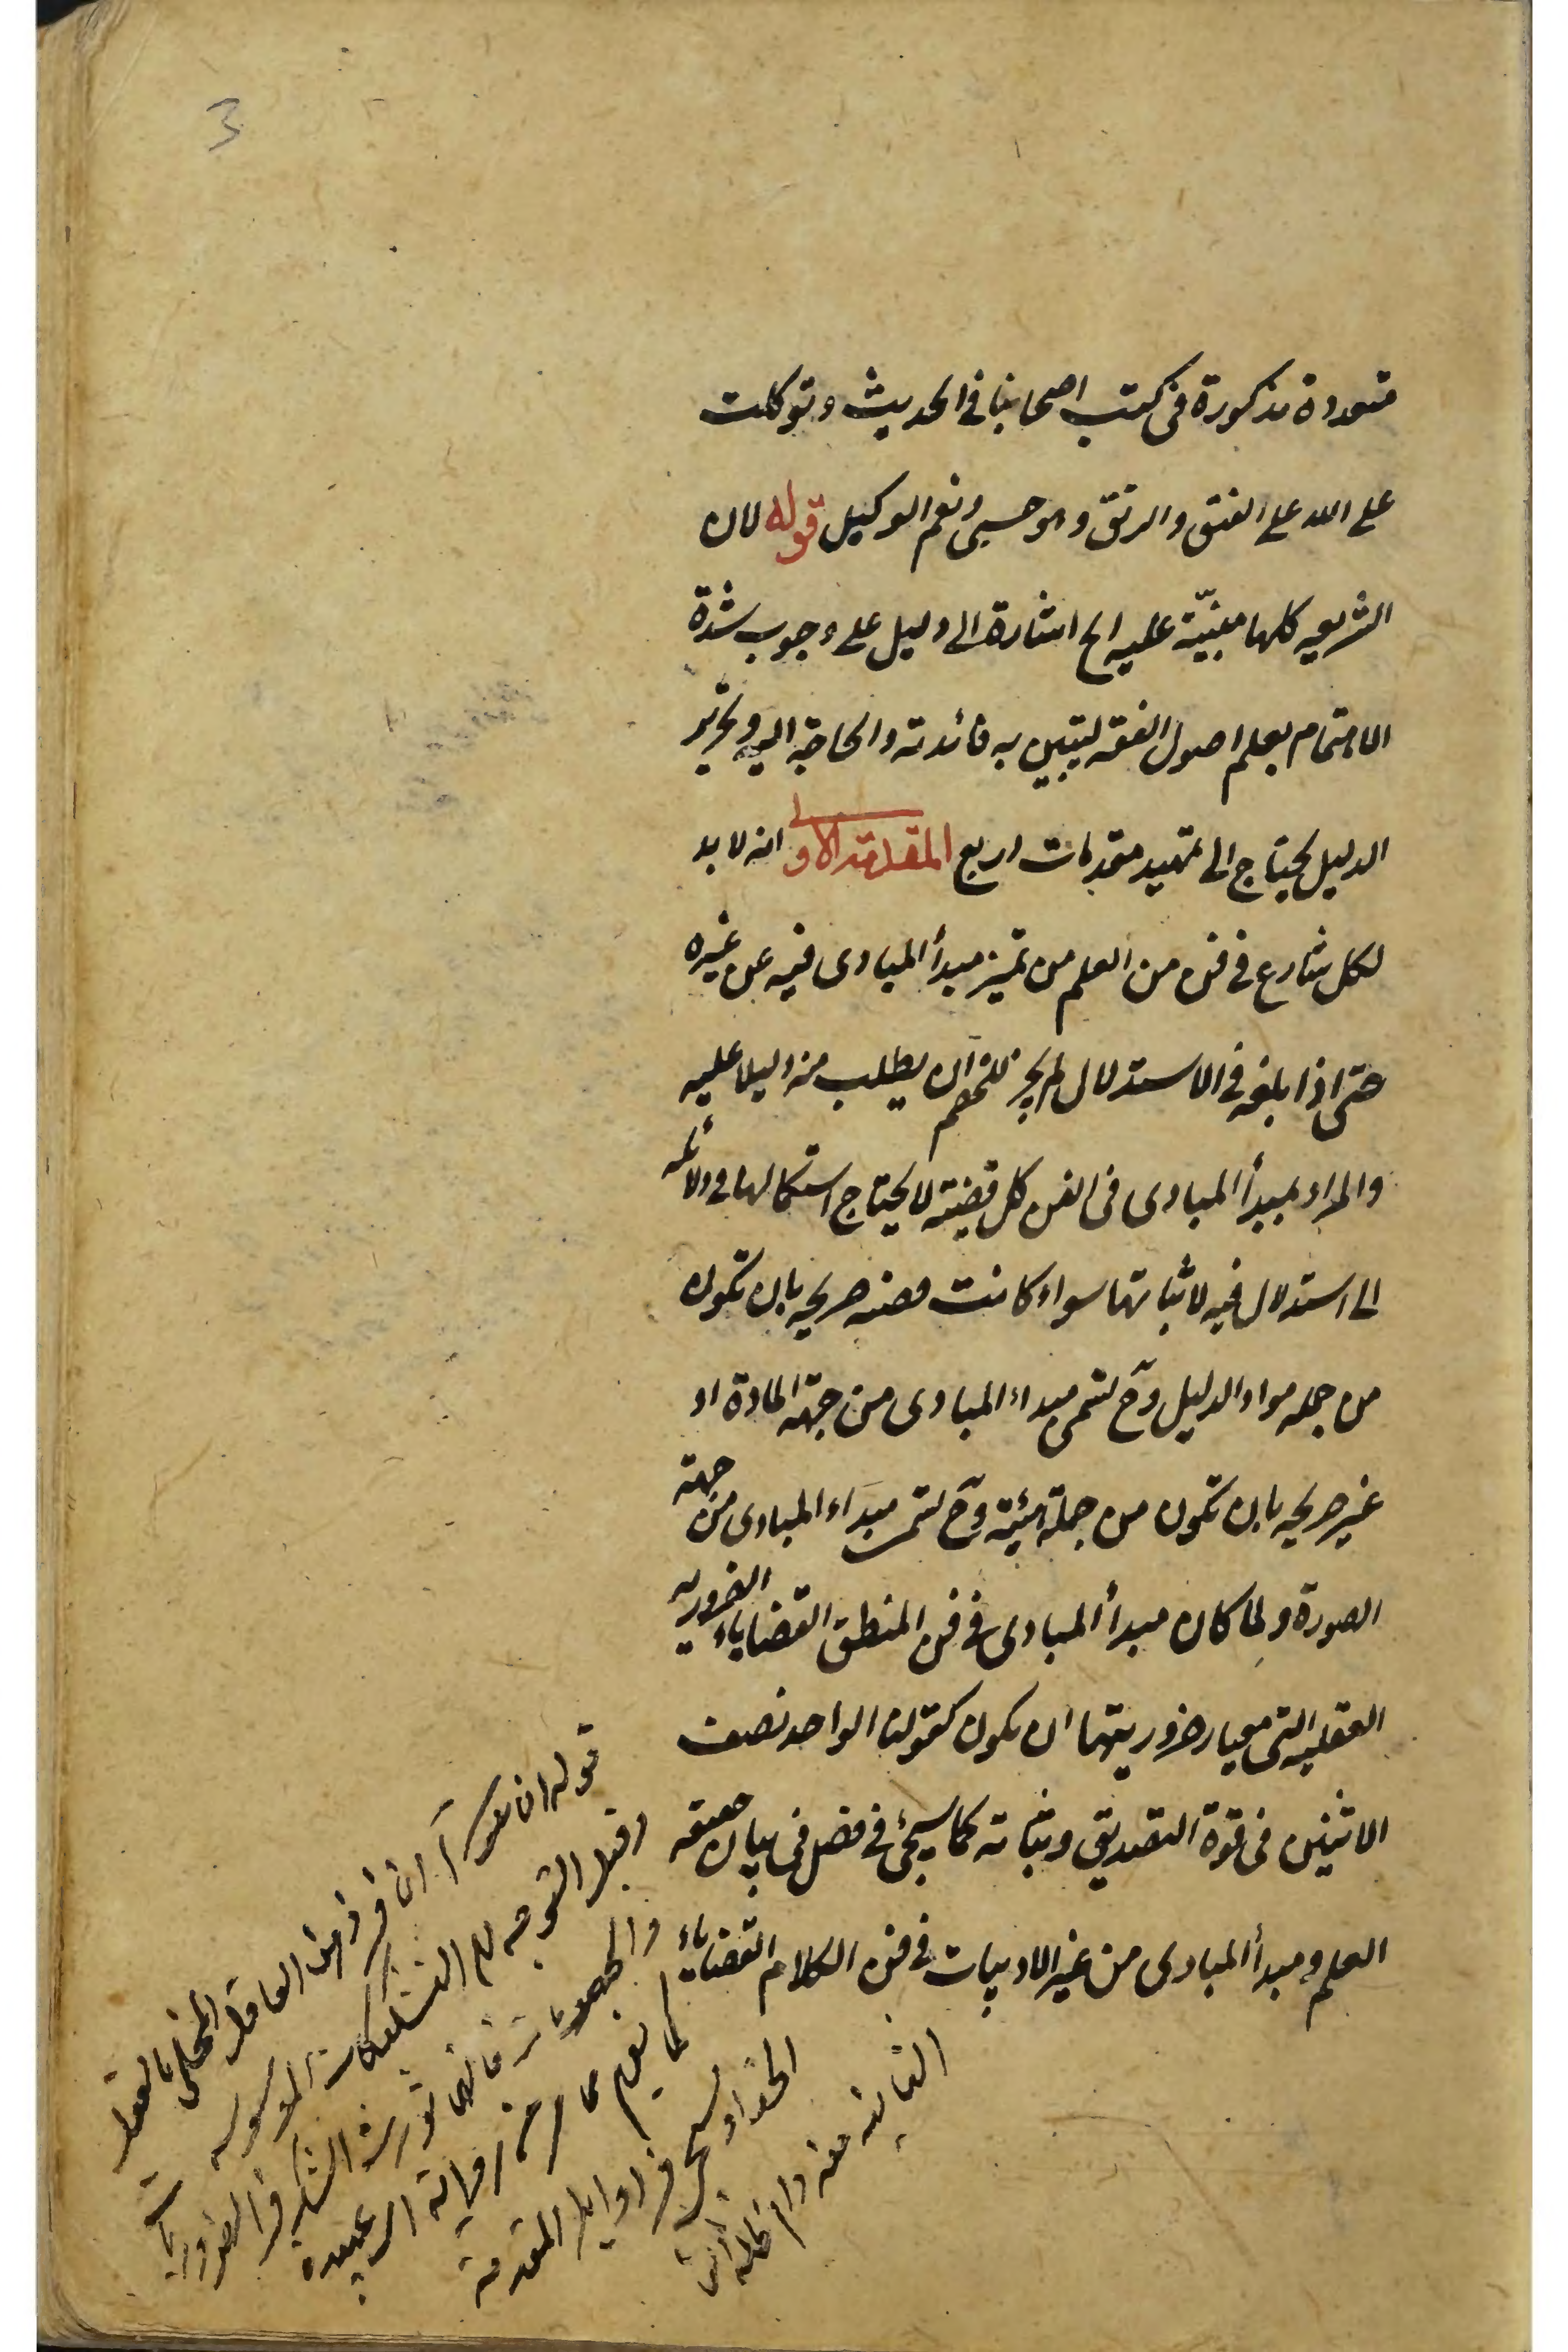 3
متعددة مذكورة فى كتب اصحابنا فى الحديث وتوكلت
على الله على الفتق والرتق وهو حسبى ونعم الوكيل قوله لان
الشريعه كلها مبنيّة عليه الخ اشارة الى دليل على وجوب شدة
الاهتمام بعلم اصول الفقه ليتبين به فائدته والحاجة اليه وتحرير
الدليل يحتاج الى تمهيد مقدمات اربع المقدمة الاولى انه لا بد
لكل شارع فى فن من العلم من تميز مبدأ المبادى فيه عن غيره
حتى اذا بلغه فى الاستدلال لم يجز للخصم ان يطلب منه دليلا عليه
والمراد بمبدأ المبادى فى الفن كل قضية لا يحتاج استعمالها فى دلائله
الى استدلال فيه لاثباتها سواء كانت صريحه بان تكون
من جمله مواد الدليل وح تسمى مبداء المبادى من جهة المادة او
غير صريحه بان تكون من جملة هيئته وح تسمى مبداء المبادى من جهة
الصورة ولما كان مبدأ المبادى فى فن المنطق القضاياء الضروريه
العقليه التى معيار ضروريتها ان يكون كقولنا الواحد نصف
الاثنين فى قوة التصديق وثباته كما سيجئ فى فصل فى بيان حقيقه
العلم ومبدأ المبادى من غير الادبيات فى فن الكلام القضاياء
قوله ان يكون آه ان فرض العاقل المخلى بالعقل
وقبل التوجه الى التشكيكات الموسوسه
والجهليات فانها تورث الشك فى الضروريات
كما يفهم من رواية ابى عبيده
الحذاء وسيجئ فى اوايل المقدمة
الثانيه منه دام ظله